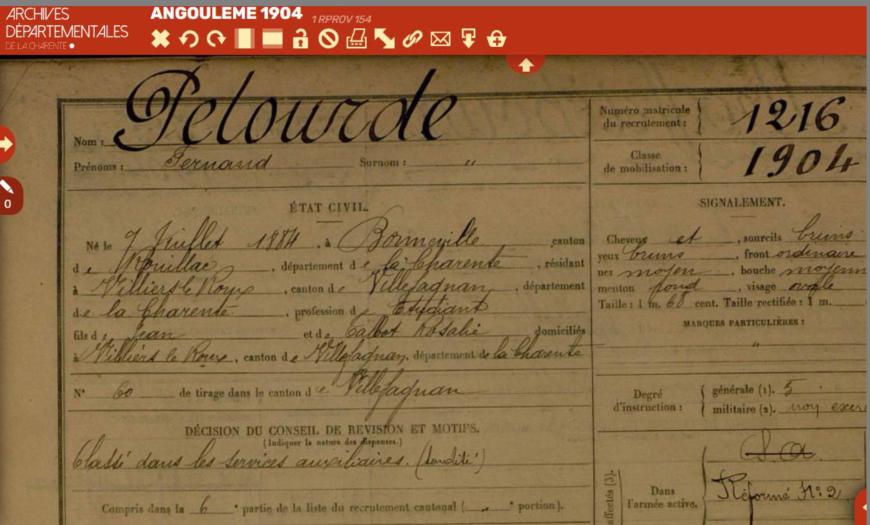 ARCHIVES
DÉPARTEMENTALES
DE LA CHARENTE
ANGOULEME 1904 1 RPROV 154
0
Nom : Pelourde
Prénoms : Fernand Surnom : "
Numéro matricule du recrutement : 1216
Classe de mobilisation : 1904
ÉTAT CIVIL.
Né le 7 Juillet 1884, à Bonneville canton
de Rouillac, département de la Charente, résidant
à Villiers le Roux, canton de Villefagnan, département
de la Charente, profession d'Etudiant
fils de Jean et de Talbot Rosalie domiciliés
à Villiers le Roux, canton de Villefagnan, département de la Charente
N° 60 de tirage dans le canton de Villefagnan
DÉCISION DU CONSEIL DE REVISION ET MOTIFS.
(Indiquer la nature des dispenses.)
Classé dans les services auxiliaires.
Compris dans la 6e partie de la liste du recrutement cantonal ( " portion).
SIGNALEMENT.
Cheveux et, sourcils bruns
yeux bruns, front ordinaire
nez moyen, bouche moyenn
menton rond, visage ovale
Taille : 1 m. 68 cent. Taille rectifiée : 1 m.
MARQUES PARTICULIÈRES :
"
Degré d'instruction : générale (1). 5
militaire (2). non exer
affectés (3).
S a
Dans l'armée active. Réformé N° 2